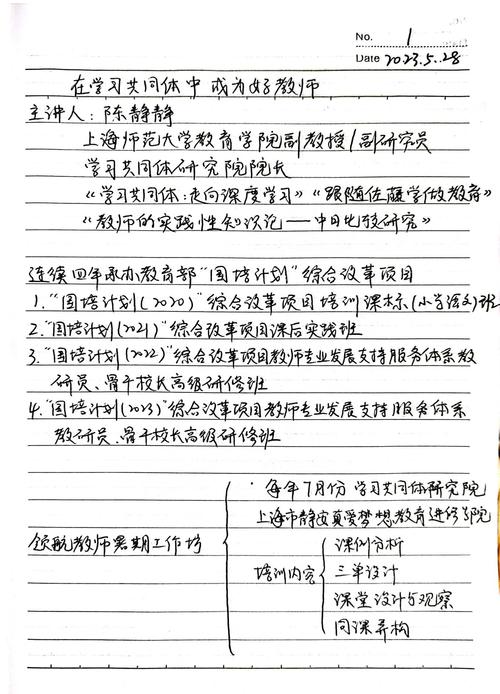 No. 1
Date 2023.5.28
在学习共同体中成为好教师
主讲人：陈静静
上海师范大学教育学院副教授/副研究员
学习共同体研究院院长
《学习共同体:走向深度学习》《跟随佐藤学做教育》
《教师的实践性知识论——中日比较研究》
连续四年承办教育部“国培计划”综合改革项目
1.“国培计划(2020)”综合改革项目培训课标(小学语文)班
2.“国培计划(2021)”综合改革项目课后实践班
3.“国培计划(2022)”综合改革项目教师专业发展支持服务体系教
研员、骨干校长高级研修班
4.“国培计划(2023)”综合改革项目教师专业发展支持服务体系
教研员、骨干校长高级研修班
领航教师暑期工作坊
每年7月份 学习共同体研究院
上海市静安真爱梦想教育进修学院
培训内容
课例分析
三单设计
课堂设计与观察
同课异构